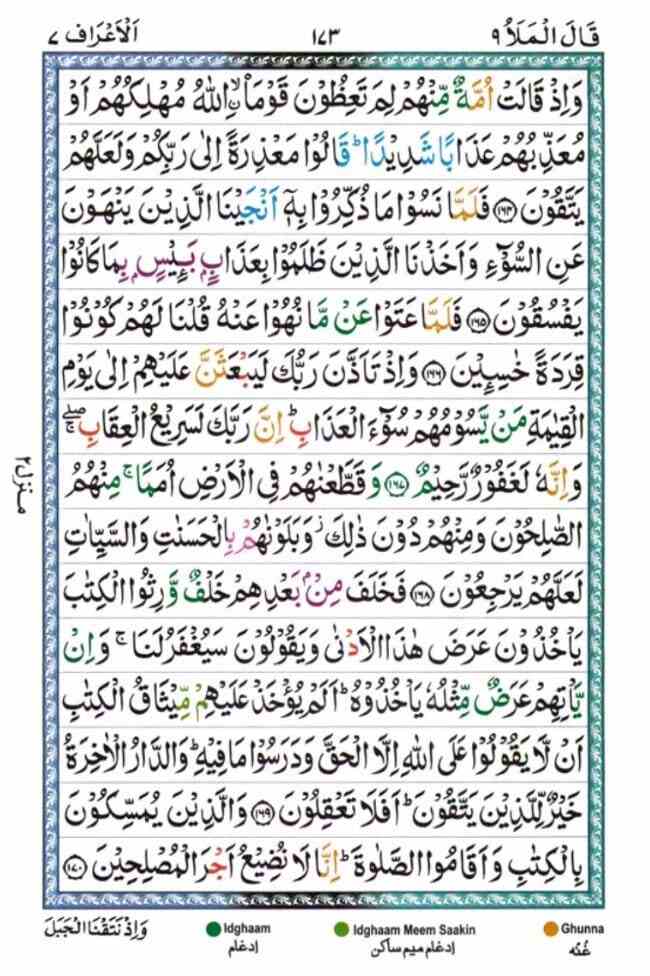 قَالَ الْمَلَاُ ٩
١٧٣
اَلْاَعْرَاف ٧
وَاِذْ قَالَتْ اُمَّةٌ مِّنْهُمْ لِمَ تَعِظُوْنَ قَوْمَاۨ ۙ اللّٰهُ مُهْلِكُهُمْ اَوْ
مُعَذِّبُهُمْ عَذَابًا شَدِيْدًا ؕ قَالُوْا مَعْذِرَةً اِلٰى رَبِّكُمْ وَلَعَلَّهُمْ
يَتَّقُوْنَ ﴿١٦٤﴾ فَلَمَّا نَسُوْا مَا ذُكِّرُوْا بِهٖۤ اَنْجَيْنَا الَّذِيْنَ يَنْهَوْنَ
عَنِ السُّوْٓءِ وَاَخَذْنَا الَّذِيْنَ ظَلَمُوْا بِعَذَابٍۭ بَـِٔيْسٍۭ بِمَا كَانُوْا
يَفْسُقُوْنَ ﴿١٦٥﴾ فَلَمَّا عَتَوْا عَنْ مَّا نُهُوْا عَنْهُ قُلْنَا لَهُمْ كُوْنُوْا
قِرَدَةً خٰسِـِٕيْنَ ﴿١٦٦﴾ وَاِذْ تَاَذَّنَ رَبُّكَ لَيَبْعَثَنَّ عَلَيْهِمْ اِلٰى يَوْمِ
الْقِيٰمَةِ مَنْ يَّسُوْمُهُمْ سُوْٓءَ الْعَذَابِ ؕ اِنَّ رَبَّكَ لَسَرِيْعُ الْعِقَابِ ۖۚ
وَاِنَّهٗ لَغَفُوْرٌ رَّحِيْمٌ ﴿١٦٧﴾ وَقَطَّعْنٰهُمْ فِى الْاَرْضِ اُمَمًا ۚ مِنْهُمُ
الصّٰلِحُوْنَ وَمِنْهُمْ دُوْنَ ذٰلِكَ ؗ وَبَلَوْنٰهُمْ بِالْحَسَنٰتِ وَالسَّيِّاٰتِ
لَعَلَّهُمْ يَرْجِعُوْنَ ﴿١٦٨﴾ فَخَلَفَ مِنْۢ بَعْدِهِمْ خَلْفٌ وَّرِثُوا الْكِتٰبَ
يَاْخُذُوْنَ عَرَضَ هٰذَا الْاَدْنٰى وَيَقُوْلُوْنَ سَيُغْفَرُ لَنَا ۚ وَاِنْ
يَّاْتِهِمْ عَرَضٌ مِّثْلُهٗ يَاْخُذُوْهُ ؕ اَلَمْ يُؤْخَذْ عَلَيْهِمْ مِّيْثَاقُ الْكِتٰبِ
اَنْ لَّا يَقُوْلُوْا عَلَى اللّٰهِ اِلَّا الْحَقَّ وَدَرَسُوْا مَا فِيْهِ ؕ وَالدَّارُ الْاٰخِرَةُ
خَيْرٌ لِّلَّذِيْنَ يَتَّقُوْنَ ؕ اَفَلَا تَعْقِلُوْنَ ﴿١٦٩﴾ وَالَّذِيْنَ يُمَسِّكُوْنَ
بِالْكِتٰبِ وَاَقَامُوا الصَّلٰوةَ ؕ اِنَّا لَا نُضِيْعُ اَجْرَ الْمُصْلِحِيْنَ ﴿١٧٠﴾
منزل ٢
وَاِذْ نَتَقْنَا الْجَبَلَ
Idghaam
ادغام
Idghaam Meem Saakin
ادغام میم ساکن
Ghunna
غُنّه